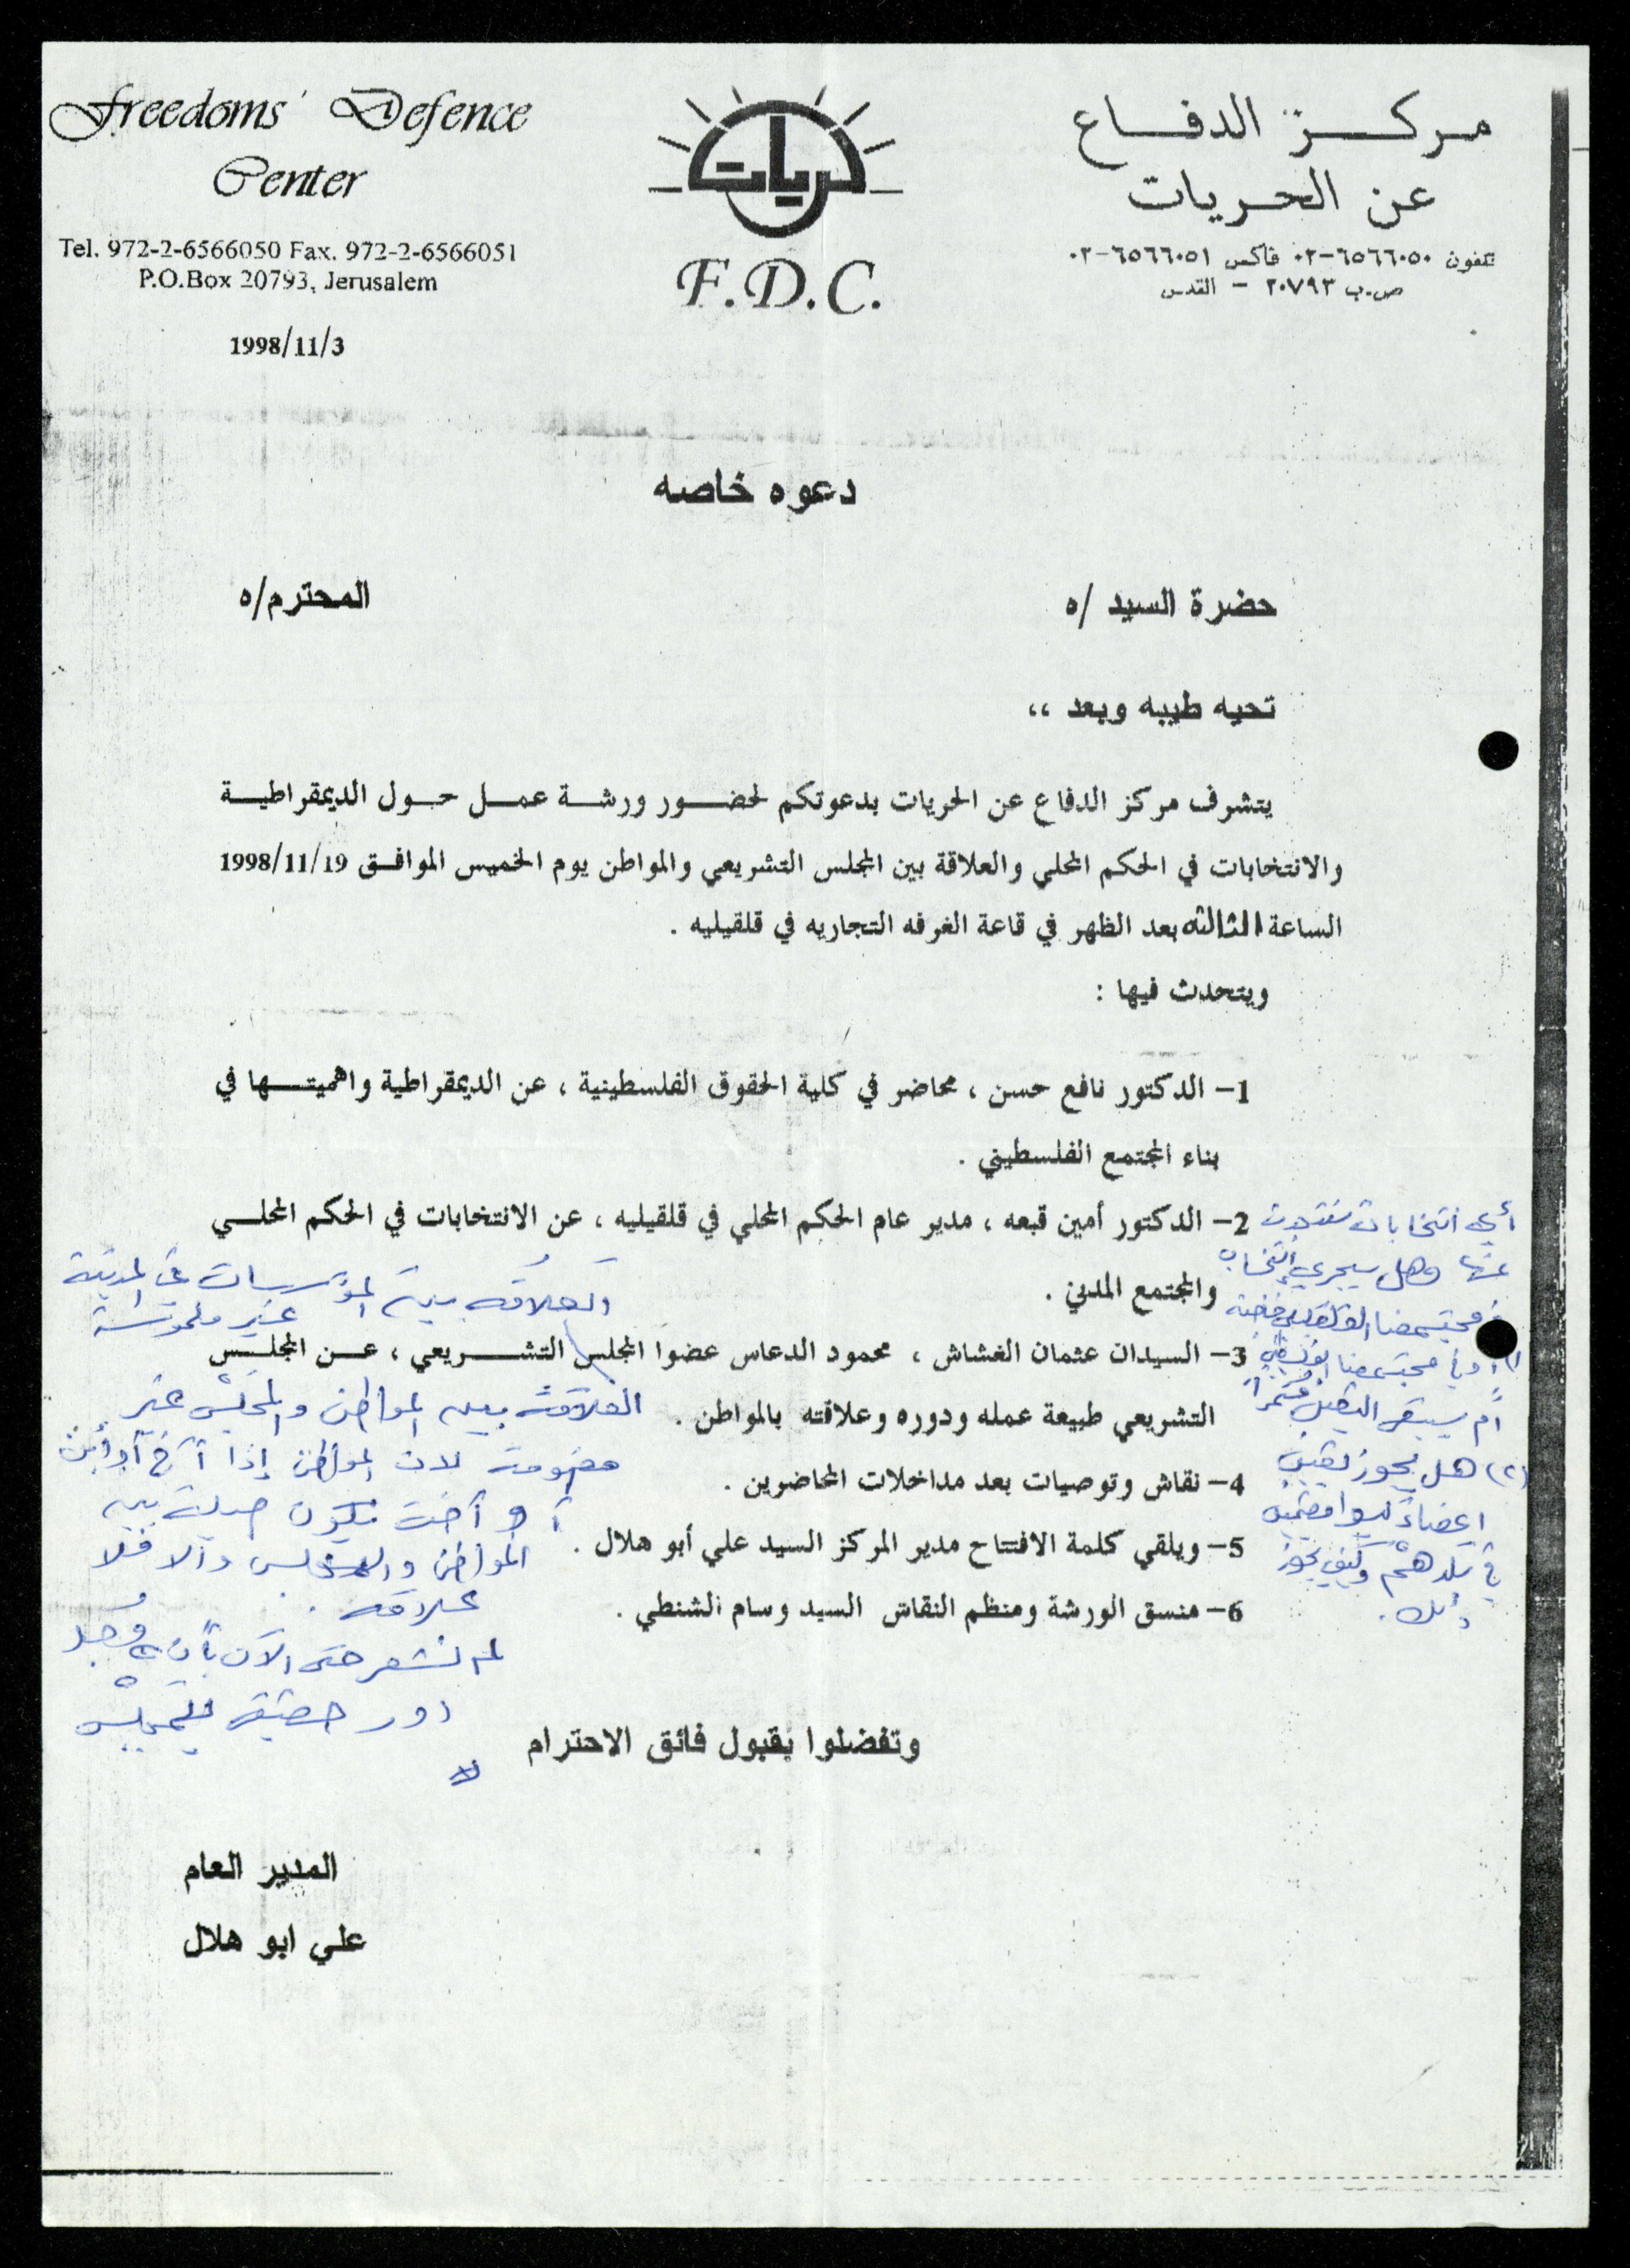 Freedoms' Defence
Center
Tel. 972-2-6566050 Fax. 972-2-6566051
P.O.Box 20793, Jerusalem
1998/11/3
حريات
F.D.C.
مركز الدفاع
عن الحريات
تلفون ٦٥٦٦٠٥٠-٠٢ فاكس ٦٥٦٦٠٥١-٠٢
ص.ب ٢٠٧٩٣ - القدس
دعوه خاصه
حضرة السيد /ه المحترم/ه
تحيه طيبه وبعد ،،
يتشرف مركز الدفاع عن الحريات بدعوتكم لحضور ورشة عمل حول الديمقراطية
والانتخابات في الحكم المحلي والعلاقة بين المجلس التشريعي والمواطن يوم الخميس الموافق 1998/11/19
الساعة الثالثه بعد الظهر في قاعة الغرفه التجاريه في قلقيليه .
ويتحدث فيها :
1- الدكتور نافع حسن ، محاضر في كلية الحقوق الفلسطينية ، عن الديمقراطية واهميتها في
بناء المجتمع الفلسطيني .
2- الدكتور أمين قبعه ، مدير عام الحكم المحلي في قلقيليه ، عن الانتخابات في الحكم المحلي
والمجتمع المدني .
3- السيدان عثمان الغشاش ، محمود الدعاس عضوا المجلس التشريعي ، عن المجلس
التشريعي طبيعة عمله ودوره وعلاقته بالمواطن .
4- نقاش وتوصيات بعد مداخلات المحاضرين .
5- ويلقي كلمة الافتتاح مدير المركز السيد علي أبو هلال .
6- منسق الورشة ومنظم النقاش السيد وسام الشنطي .
أي انتخابات ستتحدث
عنها وهل سيجري إنتخاب
أم سيبقى التعيين مستمراً
(٢) هل يجوز تعيين
اعضاء ليسوا مقيمين
في بلدهم وكيف يجوز
ذلك .
العلاقة بين المؤسسات في المدينة
غير ملموسة
العلاقة بين المواطن والمجلس غير
مفهومة لان المواطن إذا أخ أو إبن
أو أخت تكون صلة بين
المواطن والمجلس والا فلا
علاقة .
لم نشعر حتى الآن بأن يوجد
دور حقيقي للمجلس
وتفضلوا بقبول فائق الاحترام
المدير العام
علي ابو هلال